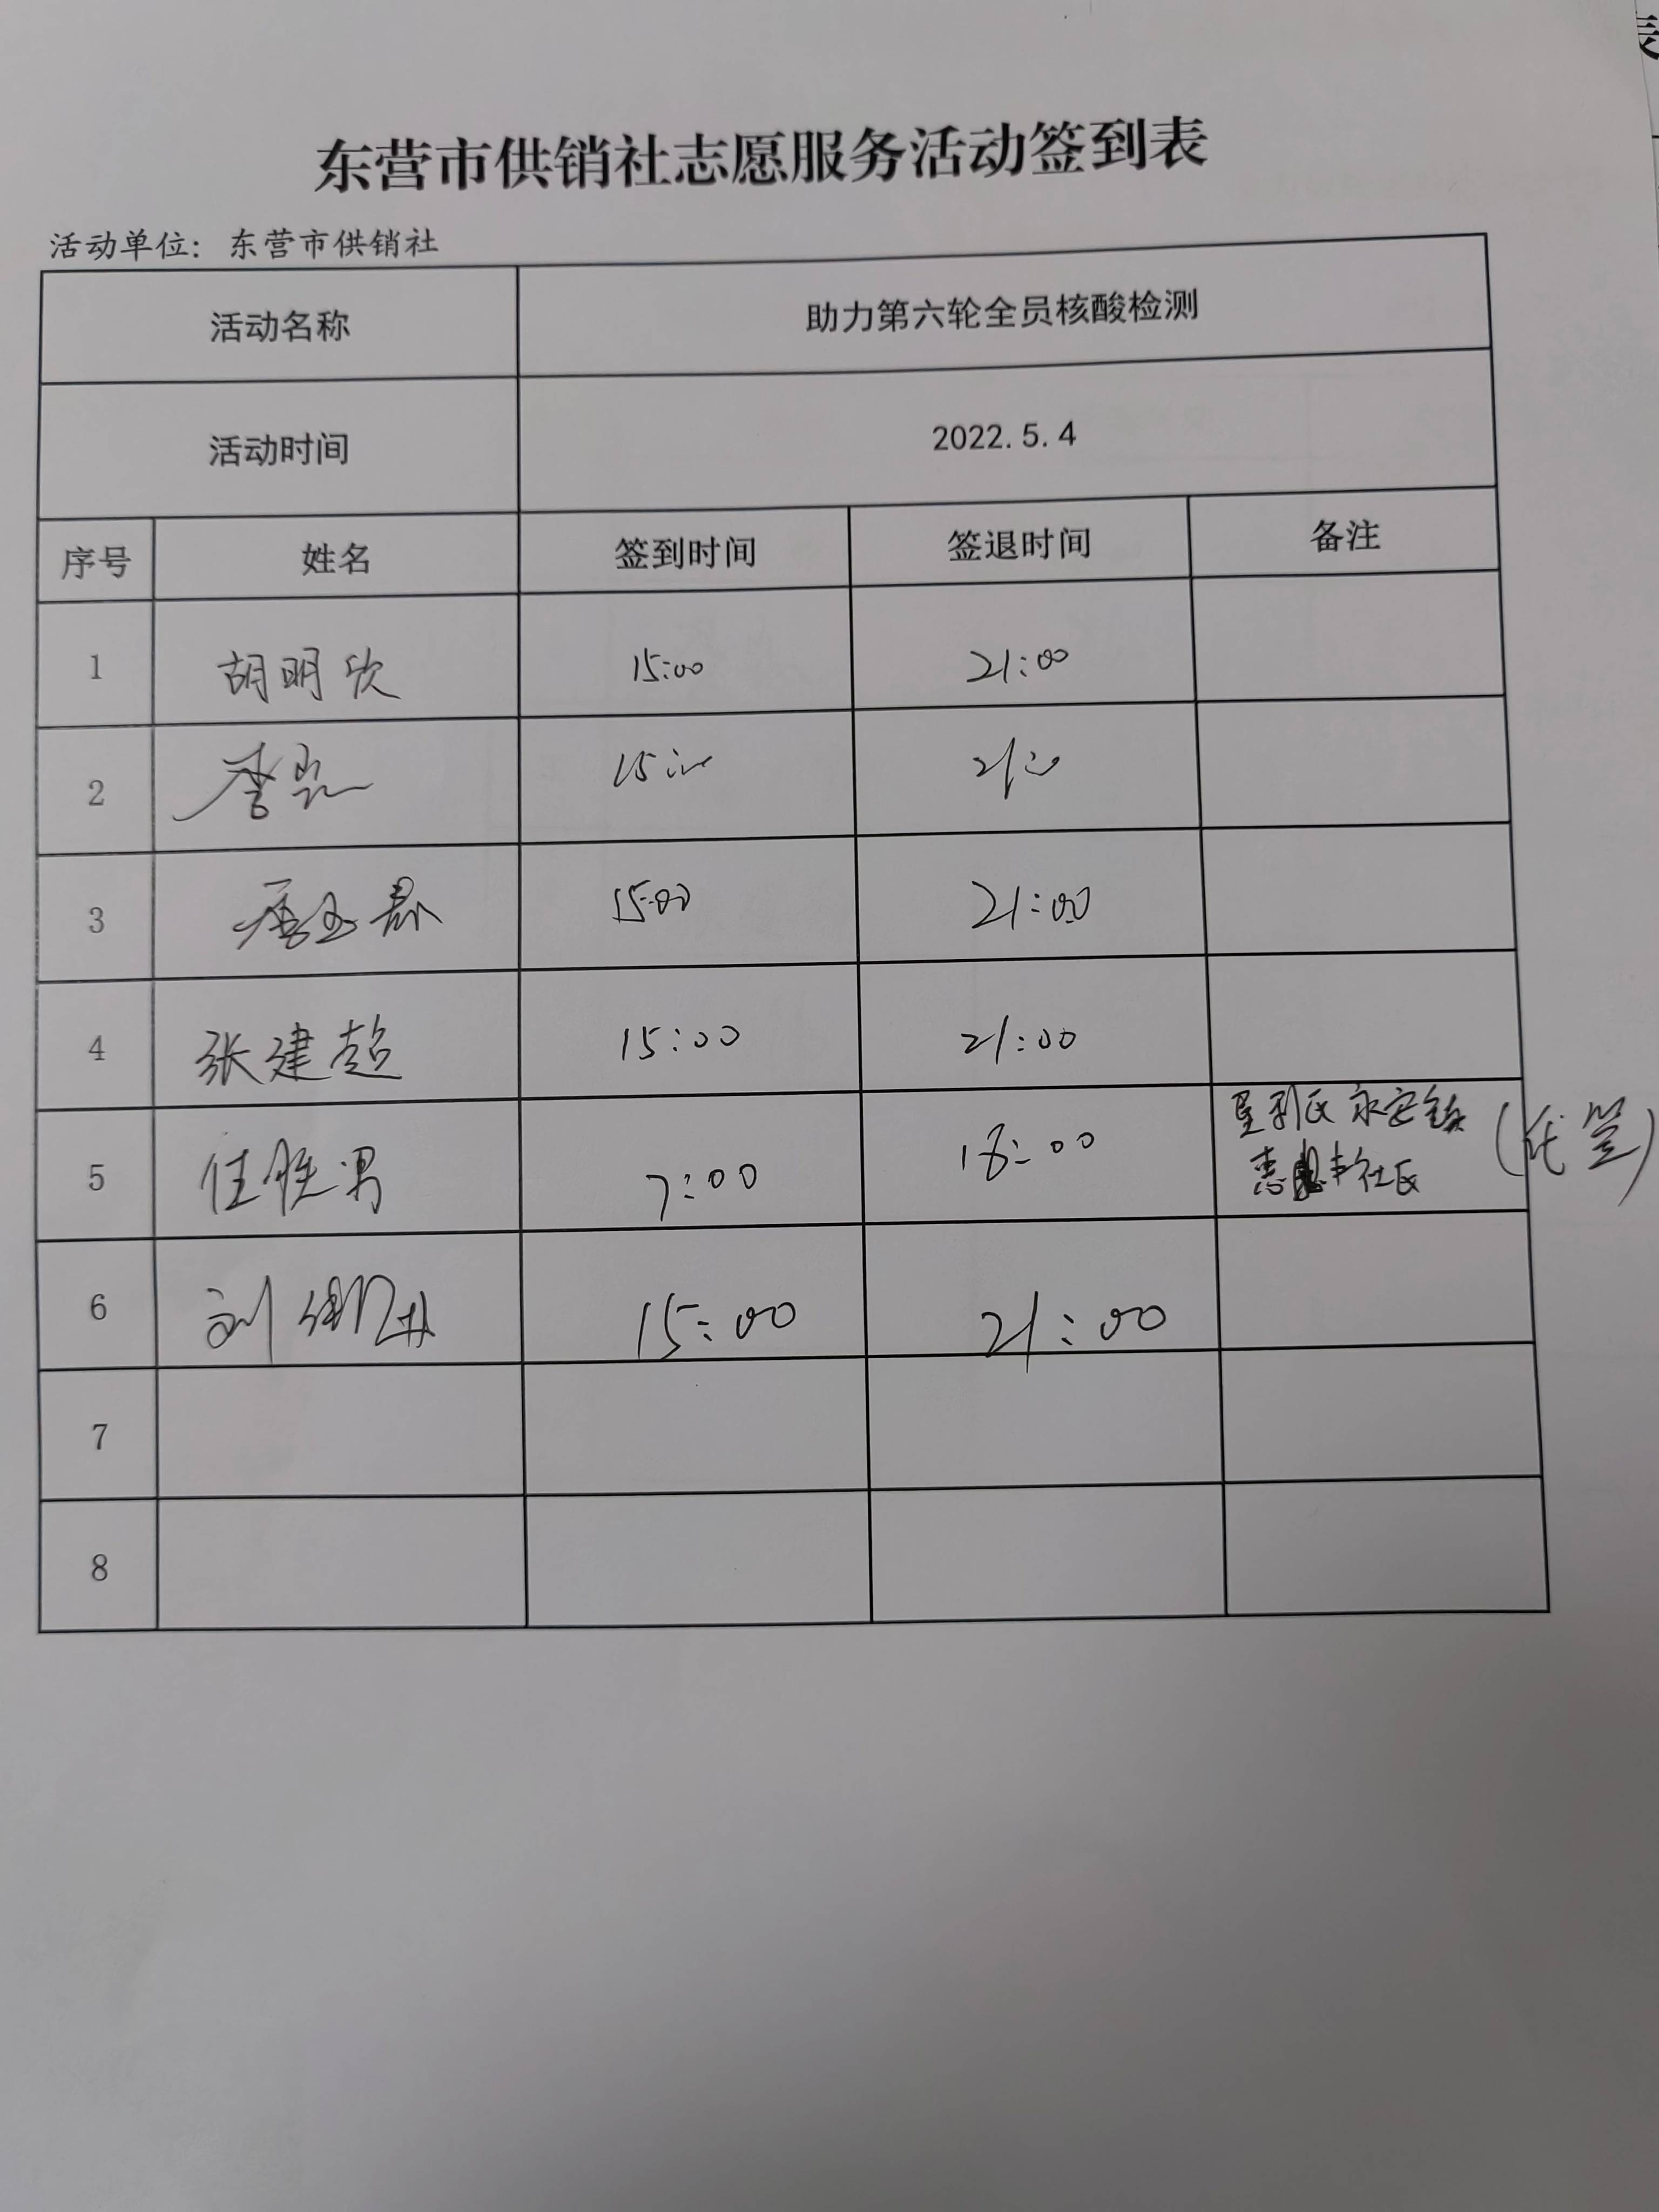 东营市供销社志愿服务活动签到表
活动单位：东营市供销社
活动名称 助力第六轮全员核酸检测
活动时间 2022.5.4
序号 姓名 签到时间 签退时间 备注
1 胡明欣 15:00 21:00
2 李 15:00 21:00
3 15:00 21:00
4 张建超 15:00 21:00
5 任胜男 7:00 18:00 垦利区永安镇
社区 (代签)
6 刘 15:00 21:00
7
8